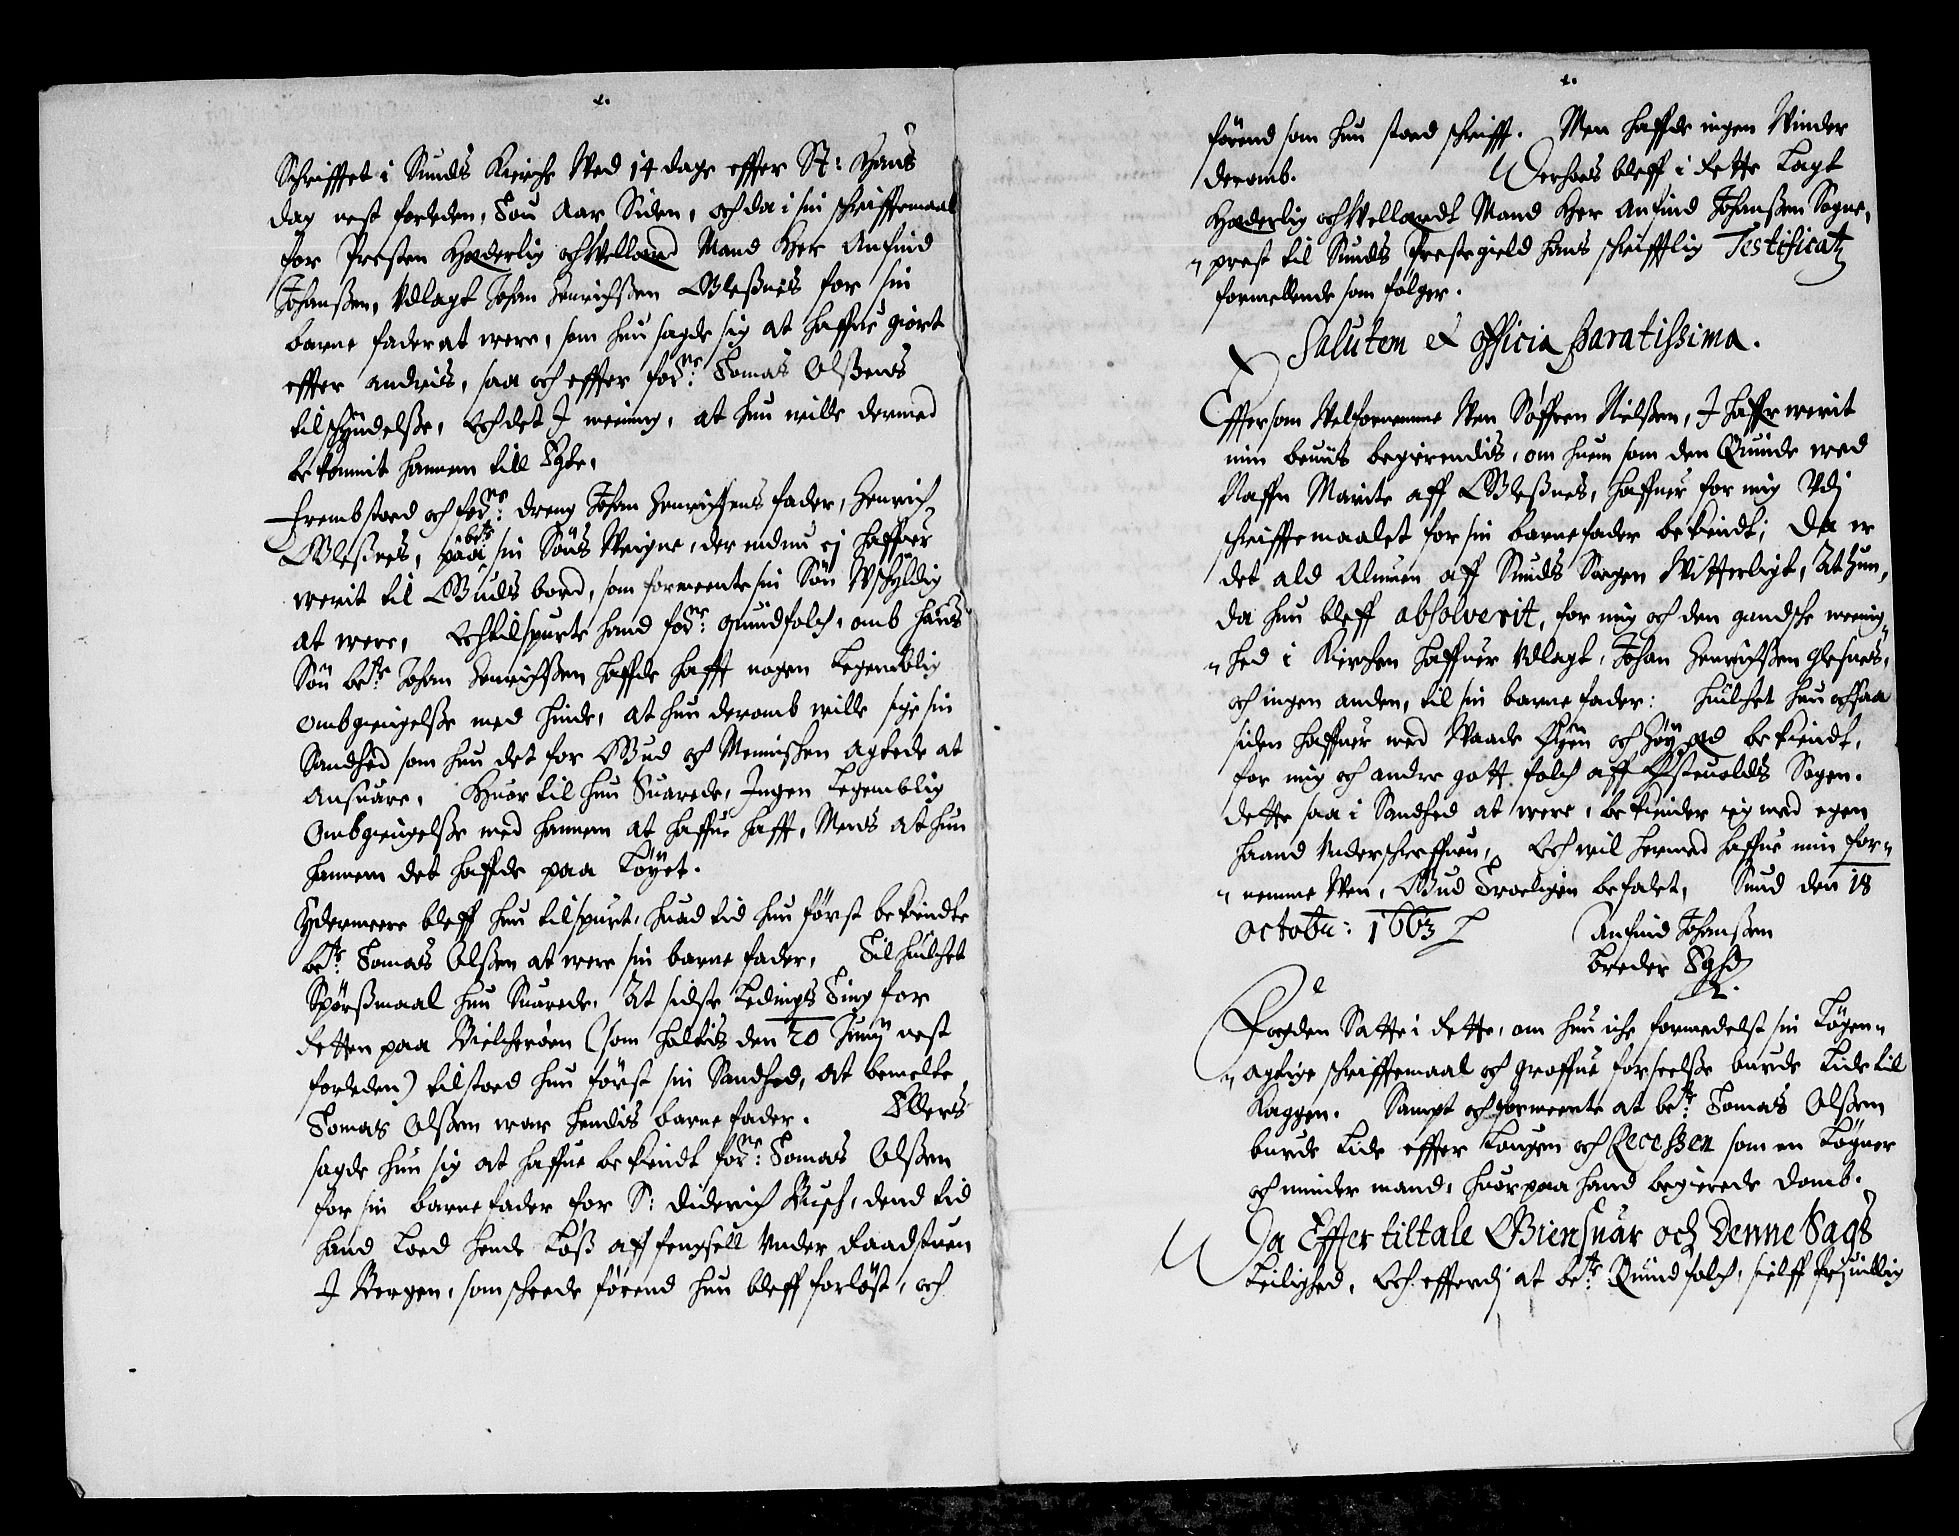 Schrifftet i Sunds Kierche Wed 14 dage effter St: Hans
dag nest forleden, Tou Aar Siden, och da i sin schrifftemaal
for Presten Hæderlig och Wellærd Mand Her Anfind
Johanßen, Udlagt Johan Henrichßen Gleßnes for sin
barne fader at were, som hun sagde sig at haffue giort
effter andris, saa och effter fornne: Tomas Olßens
tilschyndelße, Och det I meining, at hun wille dermed
bekommit hannem till Egte,
Frembstoed och fornne: dreng Johan Henrichßens fader, Henrich
Gleßnes, paa bete sin Søns Weigne, der endnu ej haffuer
werit til Guds bord, som formeente sin Søn Uschyldig
at were, Och tilspurte hand fornne: quindfolch, omb hans
Søn bete: Johan Henrichßen haffde hafft nogen Legemblig
ombgiengelße med hinde, at hun deromb wille sige sin
Sandhed som hun det for Gud och Mennischen agtede at
Ansuare, Huor til hun Suarede, Ingen Legemblig
Ombgiengelße med hannem at haffue hafft, Mens at hun
hannem det haffde paa Løyet.
Ydermeere bleff hun tilspurt, huad tid hun først bekiendte
bete: Tomas Olßen at were sin barne fader, Til huilchet
Spørßmaal hun Suarede, At sidste Ledings Ting for
Retten paa Bielcherøen (som holtis den 20 Junij nest
forleden) tilstoed hun først sin Sandhed, at bemelte
Tomas Olßen war hendis barne fader. Ellers
sagde hun sig at haffue bekiendt fornne: Tomas Olßen
for sin barne fader for S: Diderich Busch, dend tid
hand Loed hende Løß aff fengsell Under Raadstuen
I Bergen, som scheede førend hun bleff forløst, och
førend som hun stoed schrifft. Men haffde ingen Winder
deromb. Derhoes bleff i Rette Lagt
Hæderlig och Wellærdt Mand Her Anfind Johanßen Sogne,
prest til Sunds Prestegield hans schrifftlig Testificatz
formellende som følger.
Salutem & officia paratissima.
Effter som Welfornemme Wen Søffren Nielßen, I haffr werit
min beuiis begierendis, om huem som den Quinde wed
Naffn Marite aff Gleßnes, haffuer for mig Udj
schrifftemaalet for sin barnefader bekiendt; Da er
det ald Almuen aff Sunds Sogen Witterligt, At hun,
da hun bleff absolverit, for mig och den gandsche menig,
hed i Kierchen haffuer Udlagt, Johan Henrichßen Glesnes,
och ingen anden, til sin barne fader: huilchet hun ochsaa
siden haffuer med Waade Øyen och høy æd bekiendt,
for mig och andre gott folch aff Østeuolds Sogen.
dette saa i Sandhed at were, bekiender jeg med egen
haand Underschreffuen, Och wil hermed haffue min for-
nemme Wen, Gud Troeligen befalet, Sund den 18
octobr: 1663
Anfind Johanßen
breder Egh
Fogden Satte i Rette, om hun iche formedelst sin Løgen-
agtige schrifftemaal och groffue forseelße burde Lide til
Kaggen. Sampt och formeente at bete: Tomas Olßen
burde Lide effter Lougen och Recessen som en Løgner
och minder mand, huor paa hand begierede Domb.
Da Effter tiltale Giensuar och Denne Sags
Leilighed, Och efftterdj at bete: Quindfolch, sielff frjuillig